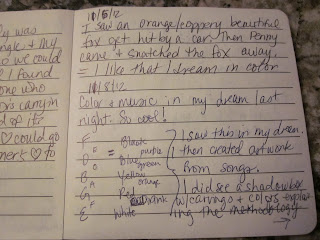 ly was
ngle & my
o we could
I found
one who
ors carry in
d of it.
♡ could go
♡ to
10/5/12
I saw an orange/coppery beautiful
fox get hit by a car. Then Penny
came & snatched the fox away.
= I like that I dream in color
10/8/12
Color & music in my dream last
night. So cool!
F = Black
purple
D Blue green
B Yellow
orange
G Red pink
E White
I saw this in my dream,
then created artwork
from songs.
I did see a shadowbox
w/carvings + colors explain
ing the methodology →